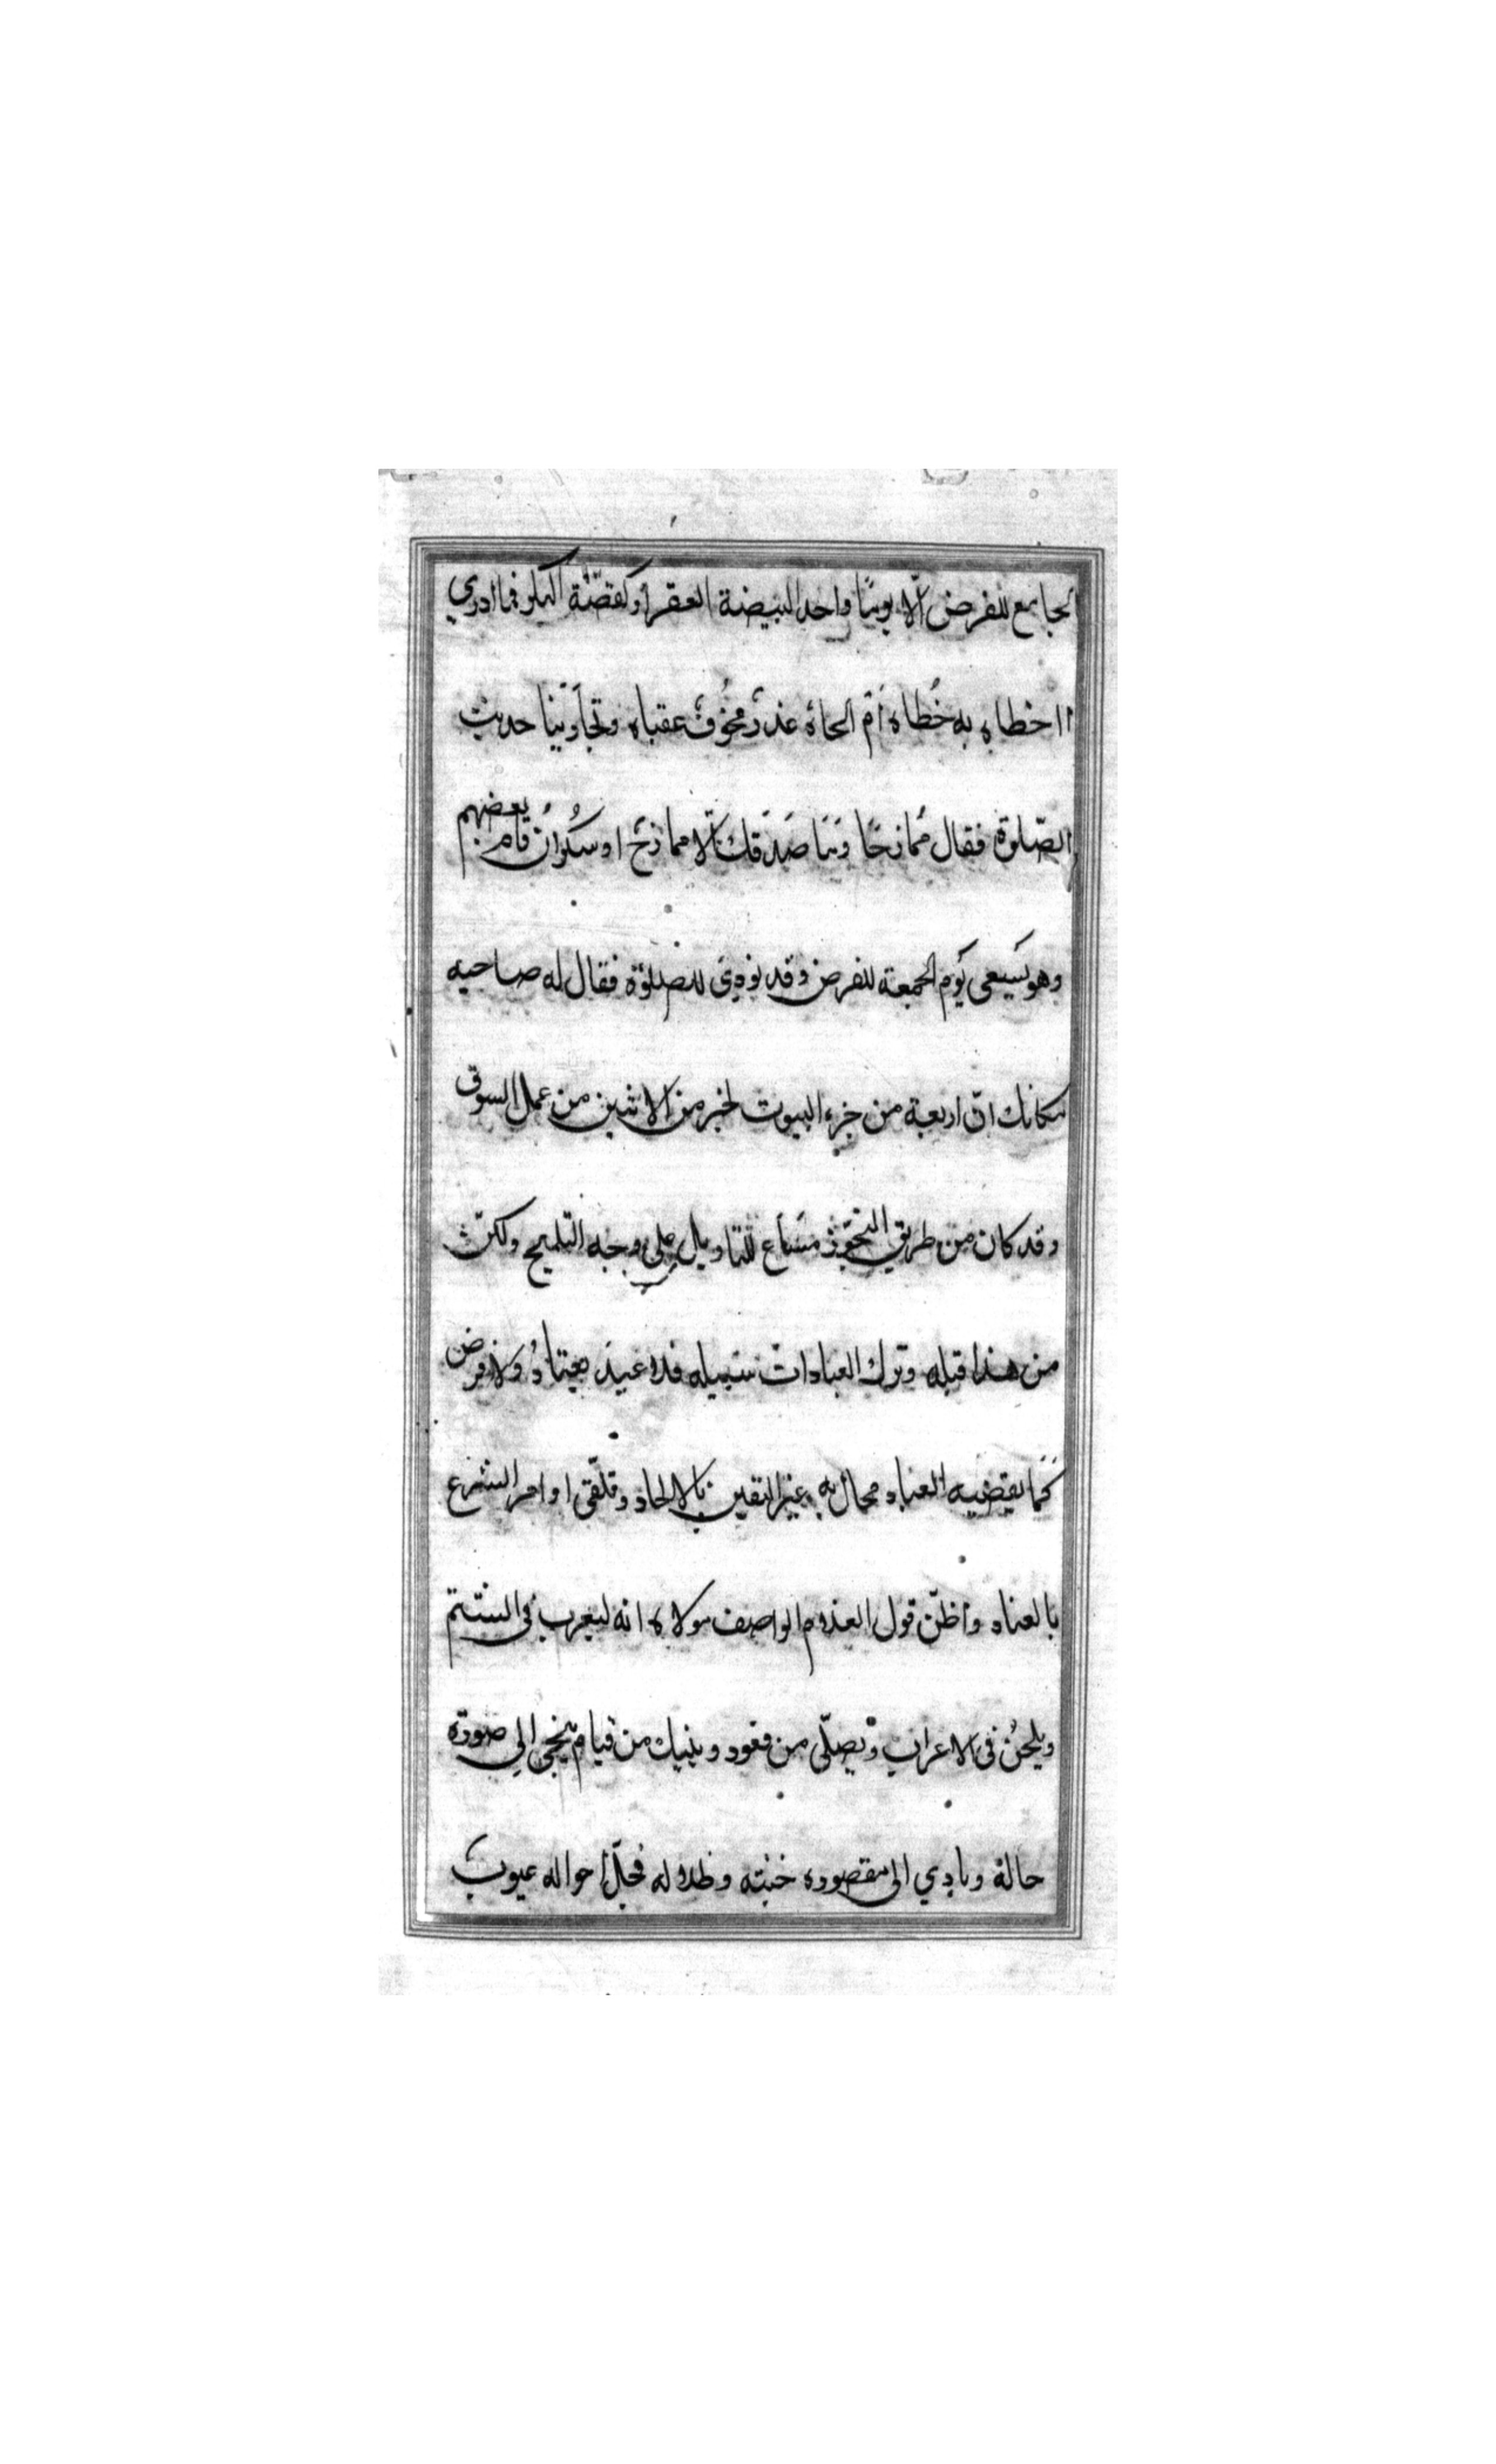 الجامع للفرض الّا يوما واحدا لبيضة العقر او كقضّة البكر فما ادري
ااخطاه به خُطاه اَمْ الجاهُ عذرٌ مَخُوفٌ عقباه وتجارَيْنا حديث
الصّلوة فقال مُمازحًا ومَا صَدَقك الّا ممازحٌ او سكرانٌ قام بعضهم
وهو يَسعى يَوم الجمعة للفرض وقد نودِيَ للصلوة فقال له صاحبه
مكانك انّ اربعة من جزء البيوت لخير من الاثنين من عمل السوق
وقد كان من طريق التجوّز مَسَاغ للتاويل على وجه التلميح ولكنّ
من هذا قبله وترك العبادات سَبيله فلا عيدَ يعتادُ ولا فرض
كَما يقضيه العباد محال به غير اليقين بالالحاد وتلقّى اوامر الشرع
بالعناد واظنّ قول العذوم الواصف مولاه انه ليغرب في الشتم
ويلحنُ في الاعراب وَيصلّى من قعود وينيك من قيام يَنجى الى صورة
حالة وبادي الى مقصوده خبثه وظلاله فجلّ احواله عيوب